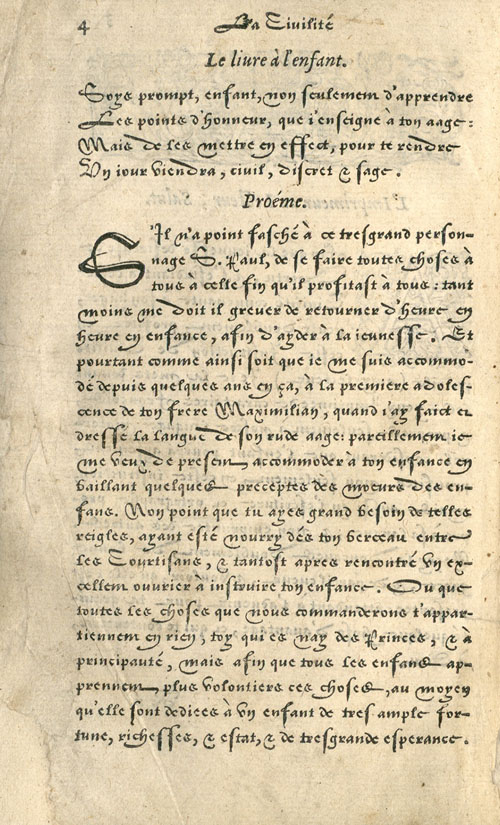 4 La Civilité
Le liure à l'enfant.
Soys prompt, enfant, non seulement d'apprendre
Les points d'honneur, que i'enseigne à ton aage:
Mais de les mettre en effect, pour te rendre
Vn iour viendra, civil, discret & sage.
Proéme.
S'Il n'a point fasché à ce tresgrand person-
nage S. Paul, de se faire toutes choses à
tous à celle fin qu'il profitast à tous: tant
moins me doit il grever de retourner d'heure en
heure en enfance, afin d'ayder à la ieunesse. Et
pourtant comme ainsi soit que ie me suis accommo-
dé depuis quelques ans en ça, à la premiere adoles-
cence de ton frere Maximilian, quand i'ay faict et
dressé la langue de son rude aage: pareillement ie
me veux de present accommoder à ton enfance en
baillant quelques preceptes des moeurs des en-
fans. Non point que tu ayes grand besoin de telles
reigles, ayant esté nourry dés ton berceau entre
les Courtisans, & tantost apres rencontré vn ex-
cellent ouvrier à instruire ton enfance. Ou que
toutes les choses que nous commanderons t'appar-
tiennent en rien, toy qui es nay des Princes, & à
principauté, mais afin que tous les enfans ap-
prennent plus volontiers ces choses, au moyen
qu'elle sont dediees à vn enfant de tres ample for-
tune, richesses, & estat, & de tresgrande esperance.